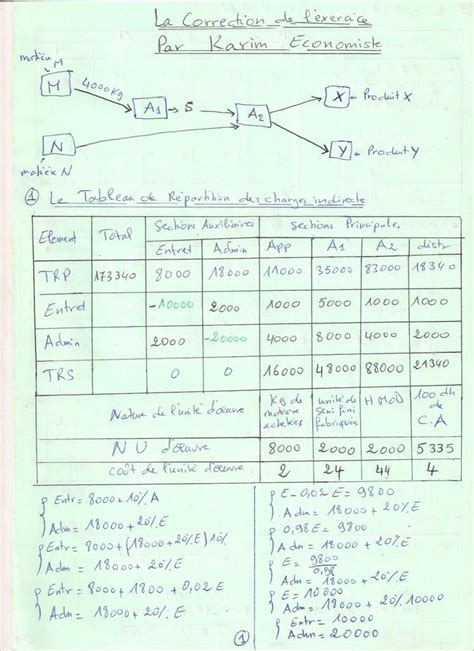 La Correction de l'exercice
Par Karim Economiste
matière M
M
4000Kg
A1
S
A2
X
Produit X
N
matière N
Y
Produit Y
① Le Tableau de Répartition des charges indirecte
Element Total Sections Auxiliaires Sections Principales
Entret Admin App A1 A2 distr
TRP 173340 8000 18000 11000 35000 83000 18340
Entret -10000 2000 1000 5000 1000 1000
Admin 2000 -20000 4000 8000 4000 2000
TRS 0 0 16000 48000 88000 21340
Nature de l'unité d'œuvre Kg de matière achetées unité de Semi fini fabriqués H MOD 100 dh de C.A
N U d'œuvre 8000 2000 2000 5335
coût de l'unité d'œuvre 2 24 44 4
Entr = 8000 + 10% A
Adm = 18000 + 20% E
Entr = 8000 + (18000 + 20% E) 10%
Adm = 18000 + 20% E
Entr = 8000 + 1800 + 0,02 E
Adm = 18000 + 20% E
E - 0,02 E = 9800
Adm = 18000 + 20% E
0,98 E = 9800
Adm = 18000 + 20% E
E = 9800/0,98
Adm = 18000 + 20% E
E = 10000
Adm = 18000 + 20% 10000
Entr = 10000
Adm = 20000
①